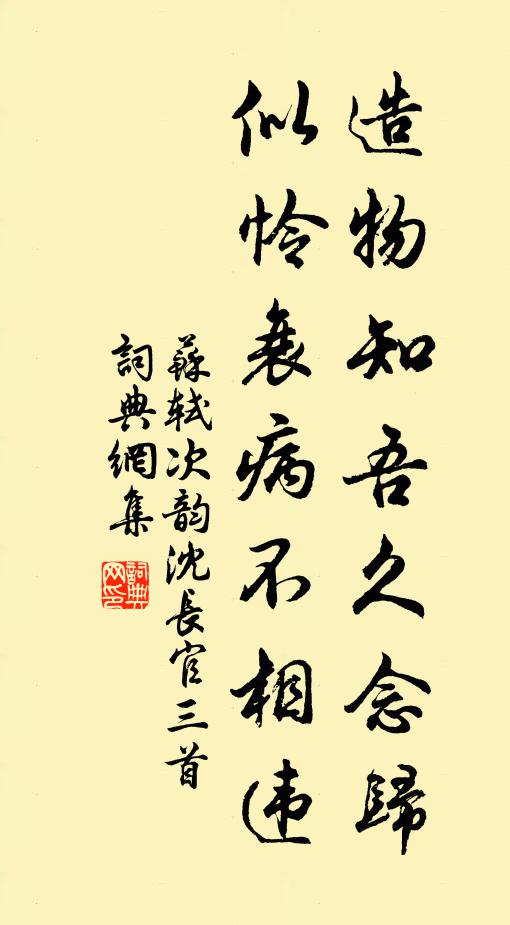 造物知吾久念歸
似怜衰病不相违
蘇轼次韵沈長官三首
詞典網集
詞典网印